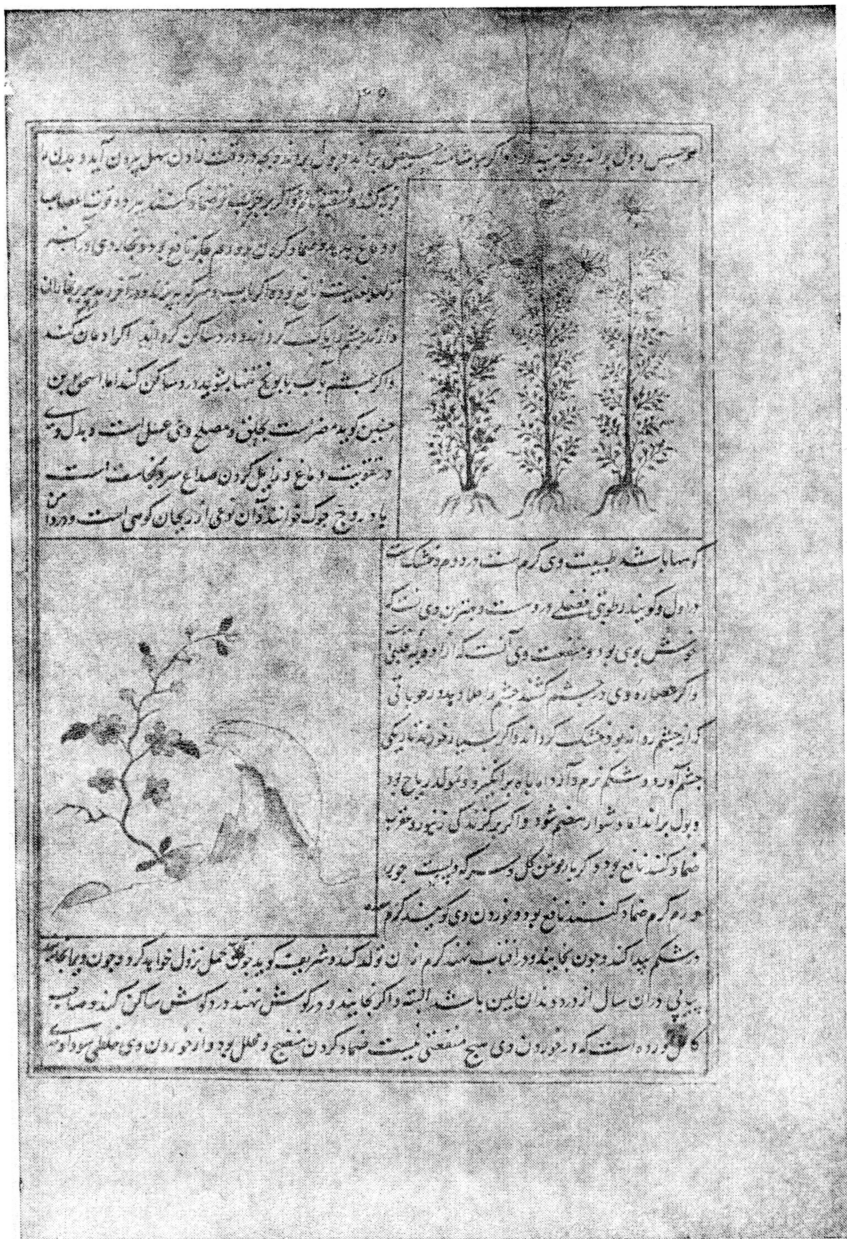 ۴۵
و بول براند و بول براند و بچه در وقت زادن سهل بیرون آید و بدن
کند و اگر بر ضماد کنند
و دماغ بود و ضماد کردن نافع بود و بخار وی
نافع بود و اگر آب و سرکه بپزند و در آخر
دارند چشم را پاک گرداند و درد ساکن گرداند اگر ادمان کنند
و اگر چشم بآب بابونج تنها بشویند درد ساکن کند اما اسحق بن
حنین گوید مضر است بحلق و مصلح وی عسل است و بدل وی
در تقویت دماغ و زایل کردن صداع سرد است
بادروج حوک خوانند و آن نوعی از ریحان کوهی است و در دامن
کوهها باشد طبیعت وی گرم است در دوم و خشک است
در اول و گویند رطوبتی فضلی دروست و بهترین وی آنست که
خوش بوی بود و منفعت وی آنست که
و اگر عصاره وی در چشم کشند چشم را جلا دهد و رطوباتی
که از چشم روانه بود خشک گرداند و اگر بسیار خورند تاریکی
چشم آورد و شکم نرم دارد اما باه برانگیزد و مولد ریاح بود
و بول براند اما دشوار هضم شود و اگر بر گزندگی زنبور و عقرب
ضماد کنند نافع بود و اگر با روغن گل و سرکه
ورم گرم ضماد کنند نافع بود و خوردن وی گویند کرم
در شکم پیدا کند و چون بخایند و در آفتاب نهند کرم از آن تولد کند و شریف گوید چون حمل نزول خواهد کرد و چون ویرا بخایند
پیاپی در آن سال از درد دندان ایمن باشد البته و اگر بخایند و در گوش نهند درد گوش ساکن کند و صاحب
کامل آورده است که در خوردن وی هیچ منفعتی نیست ضماد کردن منضج و محلل بود و از خوردن وی خلطی سوداوی